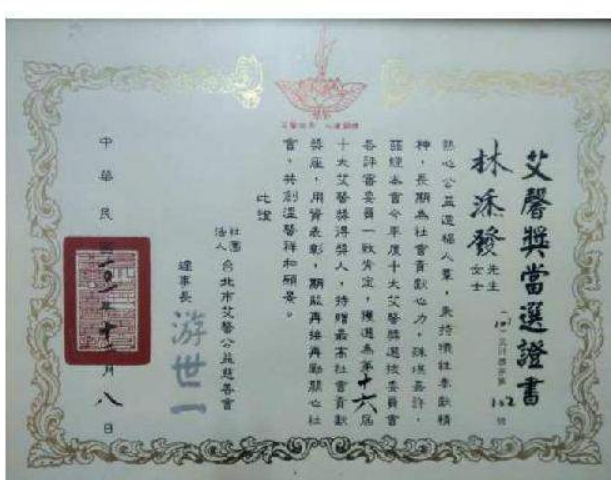 艾馨獎當選證書
林添發
先生
女士
102
號
熱心公益造福人羣，秉持犧牲奉獻精
神，長期為社會貢獻心力，殊堪嘉許，
茲經本會今年度十大艾馨獎選拔委員會
各評審委員一致肯定，獲選為第十六屆
十大艾馨獎得獎人，特贈最高社會貢獻
獎座，用資表彰，期能再接再勵關心社
會，共創溫馨祥和願景。
此證
社團
法人
台北市艾馨公益慈善會
理事長
游世一
中華民國一〇一年十二月八日